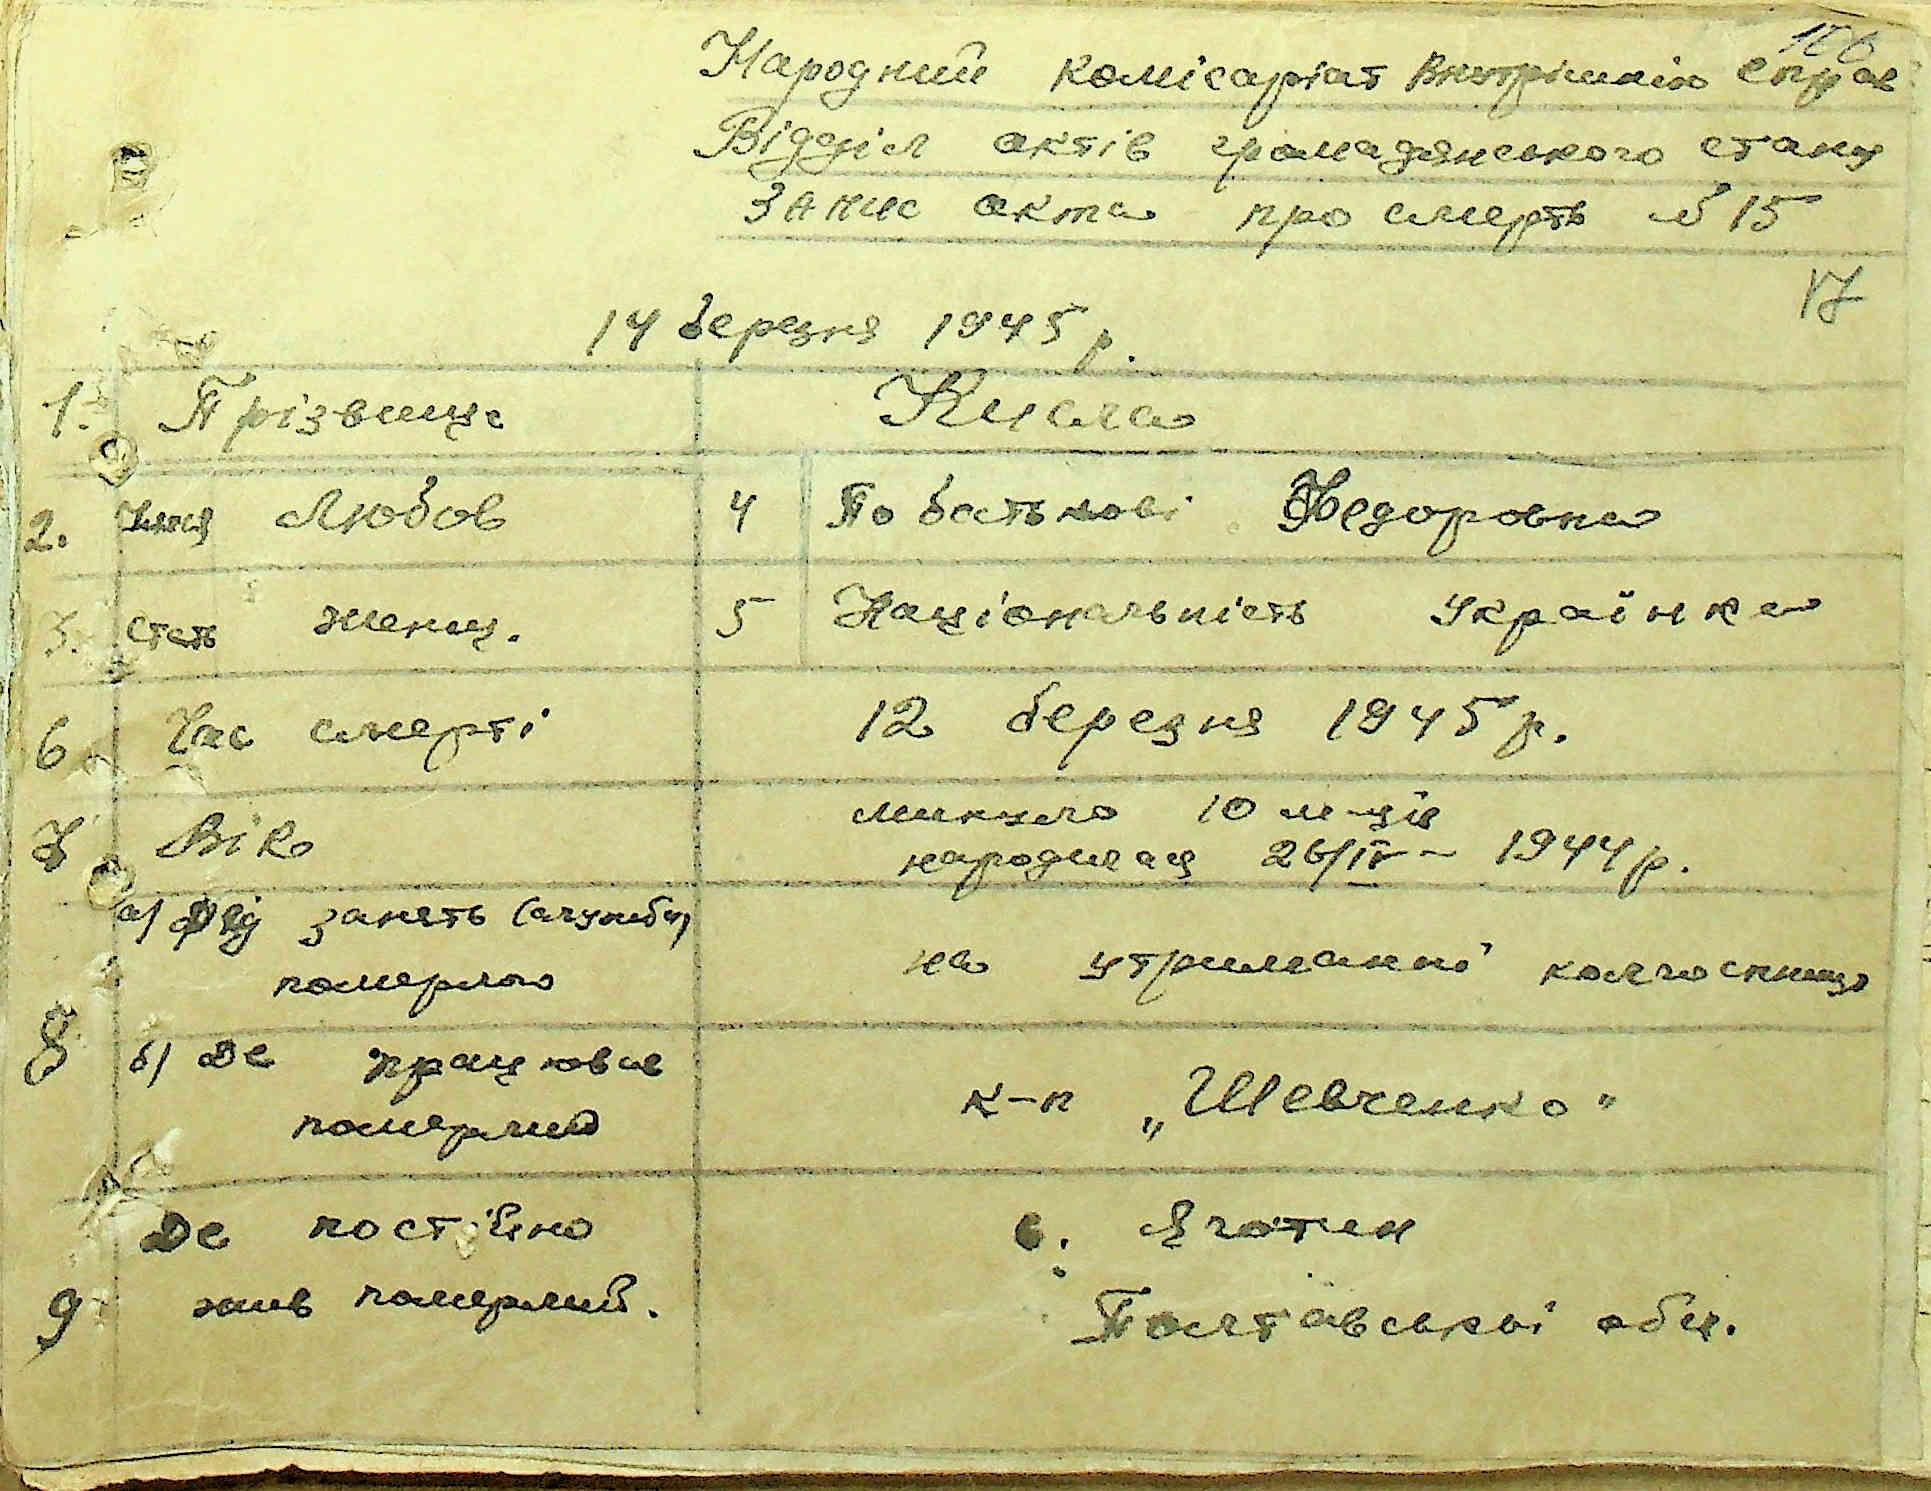 106
Народний комісаріат внутрішніх справ
Відділ актів громадянського стану
Запис акта про смерть № 15
17
14 березня 1945 р.
1. Прізвище Кисла
2. Імя Любов 4 По батькові Федоровна
3. Стать женщ. 5 Національність Українка
6 Час смерті 12 березня 1945 р.
7 Вік минуло 10 м-ців
народилась 26/IV - 1944 р.
а) Від занять (служби)
померлого на утриманні колгоспниці
8 б) Де працював
померлий к-п „Шевченко"
Де постійно с. Яготин
9 жив померлий. Полтавської обл.